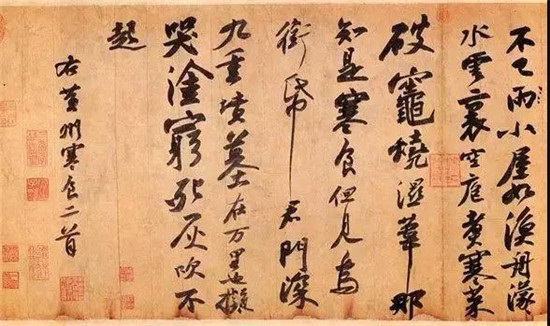 不已雨小屋如漁舟濛〻
水雲裏空庖煮寒菜
破竈燒濕葦那
知是寒食但見烏
銜帋君門深
九重墳墓在万里也擬
哭塗窮死灰吹不
起
右黄州寒食二首